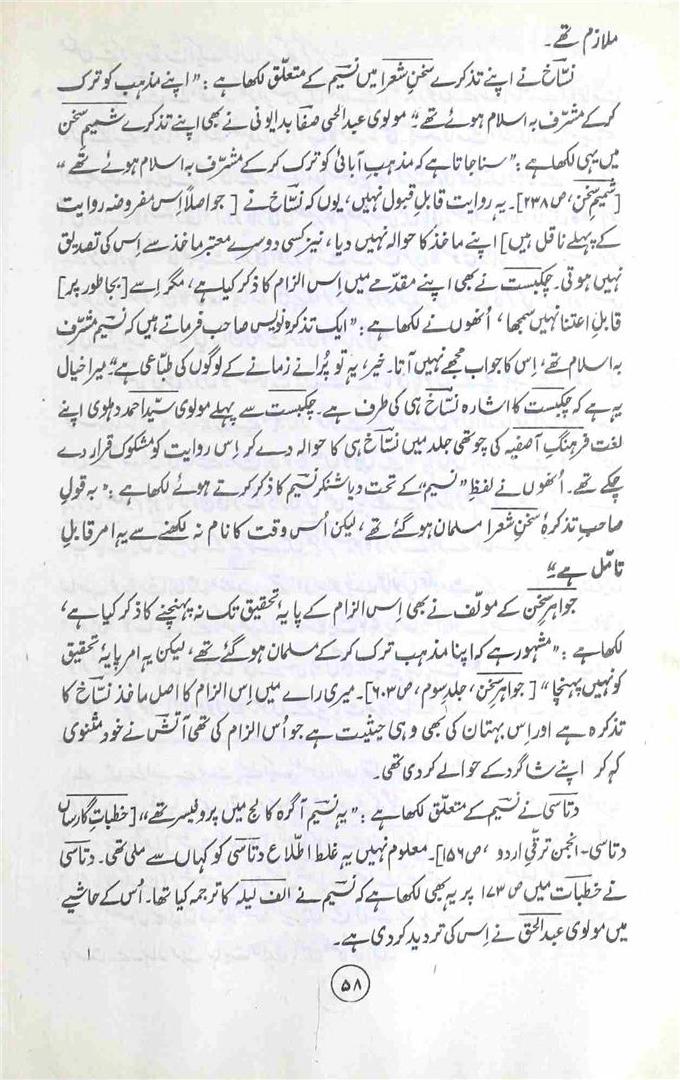 ملازم تھے۔
نسّاخ نے اپنے تذکرے سخنِ شعرا میں نسیم کے متعلّق لکھا ہے : "اپنے مذہب کو ترک
کر کے مشرّف بہ اسلام ہوئے تھے"۔ مولوی عبدالحی صفا بدایونی نے بھی اپنے تذکرے شمیمِ سخن
میں یہی لکھا ہے : "سنا جاتا ہے کہ مذہبِ آبائی کو ترک کر کے مشرّف بہ اسلام ہوئے تھے"
[شمیمِ سخن، ص ۲۳۸]۔ یہ روایت قابلِ قبول نہیں، یوں کہ نسّاخ نے [جو اصلاً اِس مفروضہ روایت
کے پہلے ناقل ہیں] اپنے ماخذ کا حوالہ نہیں دیا، نیز کسی دوسرے معتبر ماخذ سے اس کی تصدیق
نہیں ہوتی۔ چکبست نے بھی اپنے مقدّمے میں اِس الزام کا ذکر کیا ہے، مگر اِسے [بجا طور پر]
قابلِ اعتنا نہیں سمجھا، اُنھوں نے لکھا ہے : "ایک تذکرہ نویس صاحب فرماتے ہیں کہ نسیم مشرّف
بہ اسلام تھے، اِس کا جواب مجھے نہیں آتا۔ خیر، یہ تو پُرانے زمانے کے لوگوں کی طبّاعی ہے"۔ میرا خیال
یہ ہے کہ چکبست کا اشارہ نسّاخ ہی کی طرف ہے۔ چکبست سے پہلے مولوی سیّد احمد دہلوی اپنے
لغت فرہنگِ آصفیہ کی چوتھی جلد میں نسّاخ ہی کا حوالہ دے کر اِس روایت کو مشکوک قرار دے
چکے تھے۔ اُنھوں نے لفظِ "نسیم" کے تحت دیا شنکر نسیم کا ذکر کرتے ہوئے لکھا ہے : "بہ قولِ
صاحبِ تذکرۂ سخنِ شعرا مسلمان ہو گئے تھے، لیکن اُس وقت کا نام نہ لکھنے سے یہ امر قابلِ
تامّل ہے"۔
جواہرِ سخن کے مولّف نے بھی اِس الزام کے پایۂ تحقیق تک نہ پہنچنے کا ذکر کیا ہے،
لکھا ہے : "مشہور ہے کہ اپنا مذہب ترک کر کے مسلمان ہو گئے تھے، لیکن یہ امر پایۂ تحقیق
کو نہیں پہنچا" [جواہرِ سخن، جلدِ سوم، ص ۶۰۳]۔ میری راے میں اِس الزام کا اصل ماخذ نسّاخ کا
تذکرہ ہے اور اِس بہتان کی بھی وہی حیثیت ہے جو اُس الزام کی تھی آتش نے خود مثنوی
کہہ کر اپنے شاگرد کے حوالے کر دی تھی۔
دتاسی نے نسیم کے متعلّق لکھا ہے : "یہ نسیم آگرہ کالج میں پروفیسر تھے" [خطباتِ گارساں
دتاسی۔ انجمن ترقّیِ اردو، ص ۱۵۶]۔ معلوم نہیں یہ غلط اطّلاع دتاسی کو کہاں سے ملی تھی۔ دتاسی
نے خطبات میں ص ۱۷۳ پر یہ بھی لکھا ہے کہ نسیم نے الف لیلہ کا ترجمہ کیا تھا۔ اُس کے حاشیے
میں مولوی عبدالحق نے اِس کی تردید کر دی ہے۔
۵۸